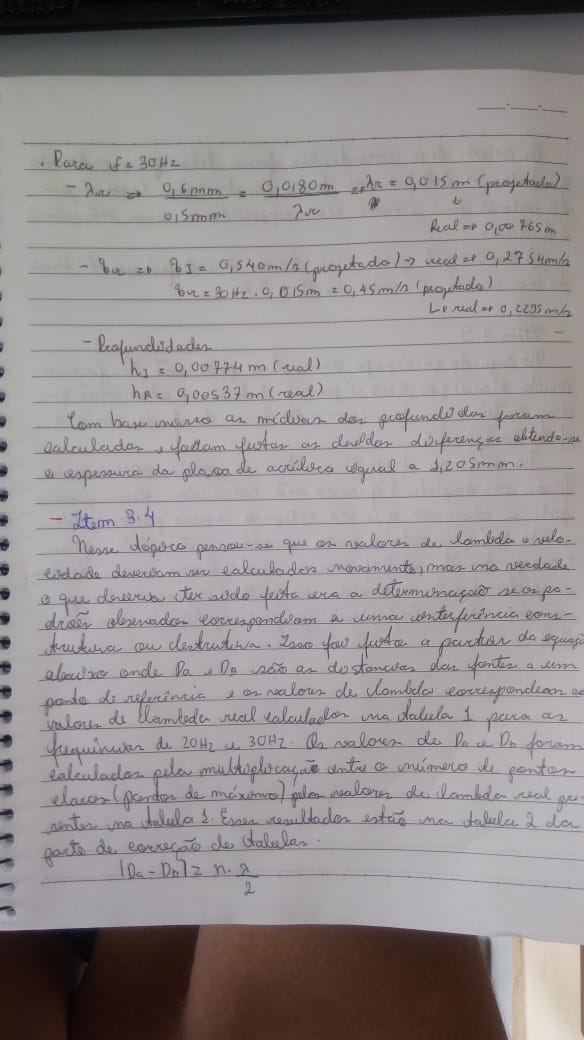 . Para f = 30Hz
- λr => 0,6mm / 0,5mm = 0,0180m / λr => λr = 0,015m (projetado)
Real => 0,00765m
- vr => vI = 0,540m/s (projetado) → real => 0,2754m/s
vr = 30Hz . 0,015m = 0,45m/s (projetado)
↳ real => 0,2295m/s
- Profundidades
hI = 0,00774m (real)
hR = 0,00537m (real)
Com base nisso as médias das profundidades foram
calculadas e foram feitas as devidas diferenças obtendo-se
a espessura da placa de acrílico igual a 1,205mm.
- Item 3.4
Nesse tópico pensou-se que os valores de lambda e velo-
cidade deveriam ser calculados novamente, mas na verdade
o que deveria ter sido feita era a determinação se os pa-
drões observados correspondiam a uma interferência cons-
trutiva ou destrutiva. Isso foi feito a partir da equação
abaixo onde Da e Db são as distâncias das fontes a um
ponto de referência e os valores de lambda correspondem ao
valores de lambda real calculados na tabela 1 para as
frequências de 20Hz e 30Hz. Os valores de Da e Db foram
calculados pela multiplicação entre o número de pontos
claros (pontos de máximo) pelos valores de lambda real pre-
sentes na tabela 1. Esses resultados estão na tabela 2 da
parte de correção de tabelas.
|Da - Db| = n . λ
2